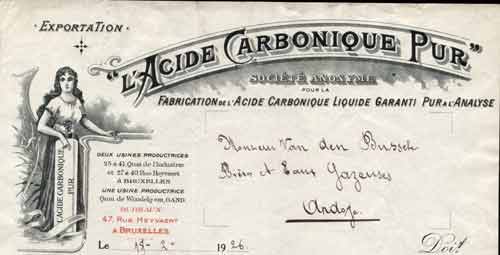 EXPORTATION
"L'ACIDE CARBONIQUE PUR"
SOCIÉTÉ ANONYME
POUR LA
FABRICATION DE L'ACIDE CARBONIQUE LIQUIDE GARANTI PUR A L'ANALYSE
L'ACIDE CARBONIQUE
PUR
DEUX USINES PRODUCTRICES
25 à 41 Quai de l'Industrie
et 27 à 40 Rue Heyvaert
À BRUXELLES
UNE USINE PRODUCTRICE
Quai de Wondelgem, GAND
BUREAUX
47, RUE HEYVAERT
À BRUXELLES
Monsieur Van den Bussche
Bières et Eaux Gazeuses
Ardoye
Le 15-2- 1926.
Doit